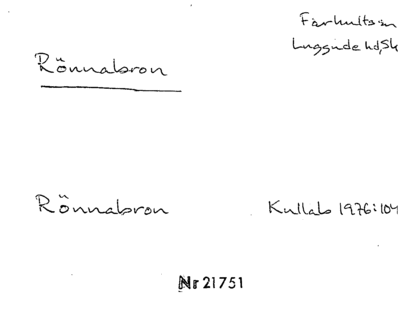 Farhults sn
Luggude hd, Sk
Rönnabron
Rönnabron Kullab 1976:104
Nr 21751